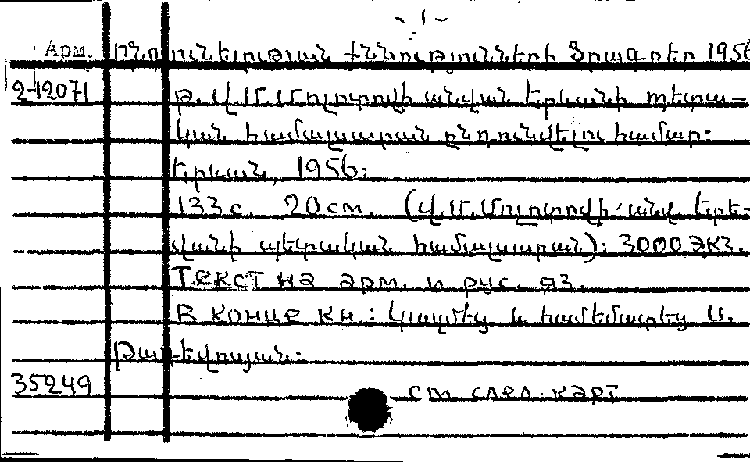 - 1 -
Арм. Ընդունելության քննությունների ծրագրեր 1956
2-12071 թ. Վ. Մ. Մոլոտովի անվան Երևանի պետա-
կան համալսարան ընդունվելու համար:
Երևան, 1956:
133 с. 20 см. (Վ. Մ. Մոլոտովի անվ. Երե-
վանի պետական համալսարան): 3000 экз.
Текст на арм. и рус. яз.
В конце кн.: Կազմեց և համեմատեց Ա.
Թադևոսյան:
35249 см. след. карт